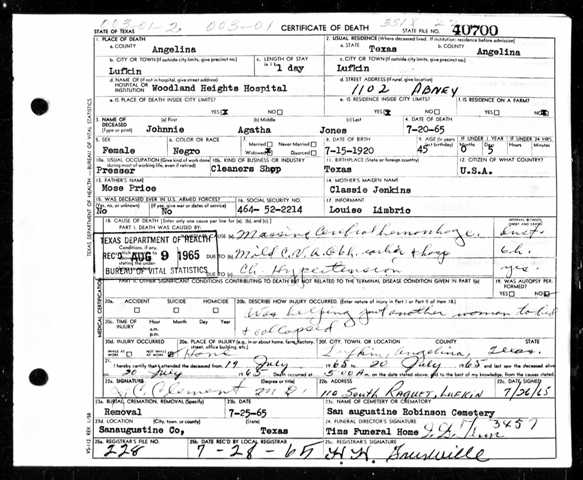 003-01-2 003-01 CERTIFICATE OF DEATH 351X
STATE OF TEXAS STATE FILE NO. 40700
1. PLACE OF DEATH 2. USUAL RESIDENCE (Where deceased lived. If institution: residence before admission)
a. COUNTY Angelina a. STATE Texas b. COUNTY Angelina
b. CITY OR TOWN (If outside city limits, give precinct no.) c. LENGTH OF STAY c. CITY OR TOWN (If outside city limits, give precinct no.)
Lufkin 1 day Lufkin
d. NAME OF (If not in hospital, give street address) HOSPITAL OR INSTITUTION Woodland Heights Hospital d. STREET ADDRESS (If rural, give location) 1102 ABNEY
e. IS PLACE OF DEATH INSIDE CITY LIMITS? e. IS RESIDENCE INSIDE CITY LIMITS? f. IS RESIDENCE ON A FARM?
YES NO YES NO YES NO
3. NAME OF DECEASED (Type or print) (a) First (b) Middle (c) Last 4. DATE OF DEATH
Johnnie Agatha Jones 7-20-65
5. SEX 6. COLOR OR RACE 7. Married Never Married Widowed Divorced 8. DATE OF BIRTH 9. AGE IF UNDER 1 YEAR IF UNDER 24 HRS.
Female Negro 7-15-1920 45 0 5
10a. USUAL OCCUPATION (Give kind of work done during most of working life, even if retired) 10b. KIND OF BUSINESS OR INDUSTRY 11. BIRTHPLACE (State or foreign country) 12. CITIZEN OF WHAT COUNTRY?
Presser Cleaners Shop Texas U.S.A.
13. FATHER'S NAME 14. MOTHER'S MAIDEN NAME
Mose Price Classie Jenkins
15. WAS DECEASED EVER IN U.S. ARMED FORCES? 16. SOCIAL SECURITY NO. 17. INFORMANT
(Yes, no, or unknown) (If yes, give war or dates of service)
No No 464-52-2214 Louise Limbrio
18. CAUSE OF DEATH [Enter only one cause per line for (a), (b), and (c).]
PART I. DEATH WAS CAUSED BY:
IMMEDIATE CAUSE (a) Massive Cerebral hemorrhage
TEXAS DEPARTMENT OF HEALTH
REC'D AUG 9 1965
BUREAU OF VITAL STATISTICS
Mild C.V.A.
DUE TO (c) Ch Hypertension yrs.
PART II. OTHER SIGNIFICANT CONDITIONS CONTRIBUTING TO DEATH BUT NOT RELATED TO THE TERMINAL DISEASE CONDITION GIVEN IN PART I(a) 19. WAS AUTOPSY PERFORMED?
YES NO
20a. ACCIDENT SUICIDE HOMICIDE 20b. DESCRIBE HOW INJURY OCCURRED. (Enter nature of injury in Part I or Part II of item 18.)
Was helping put another woman to bed
20c. TIME OF INJURY Hour Month Day Year a.m. p.m. & collapsed
20d. INJURY OCCURRED 20e. PLACE OF INJURY (e.g., in or about home, farm, factory, street, office building, etc.) 20f. CITY, TOWN, OR LOCATION COUNTY STATE
WHILE AT WORK NOT WHILE AT WORK Home Lufkin, Angelina, Texas.
21. I hereby certify that I attended the deceased from 19 July 65 to 20 July 65
20 July 65 Death occurred at 5:00 A m. on the date stated above; and to the best of my knowledge, from the causes stated.
22a. SIGNATURE (Degree or title) 22b. ADDRESS 22c. DATE SIGNED
Clement M.D. 110 South Raguet, Lufkin 7/26/65
23a. BURIAL, CREMATION, REMOVAL (Specify) 23b. DATE 23c. NAME OF CEMETERY OR CREMATORY
Removal 7-25-65 San augustine Robinson Cemetery
23d. LOCATION (City, town, or county) (State) 24. FUNERAL DIRECTOR'S SIGNATURE
Sanaugustine Co, Texas Tims Funeral Home 3457
25a. REGISTRAR'S FILE NO. 25b. DATE REC'D BY LOCAL REGISTRAR 25c. REGISTRAR'S SIGNATURE
228 7-28-65
TEXAS DEPARTMENT OF HEALTH - BUREAU OF VITAL STATISTICS
MEDICAL CERTIFICATION
VS-112 REV. 1/58